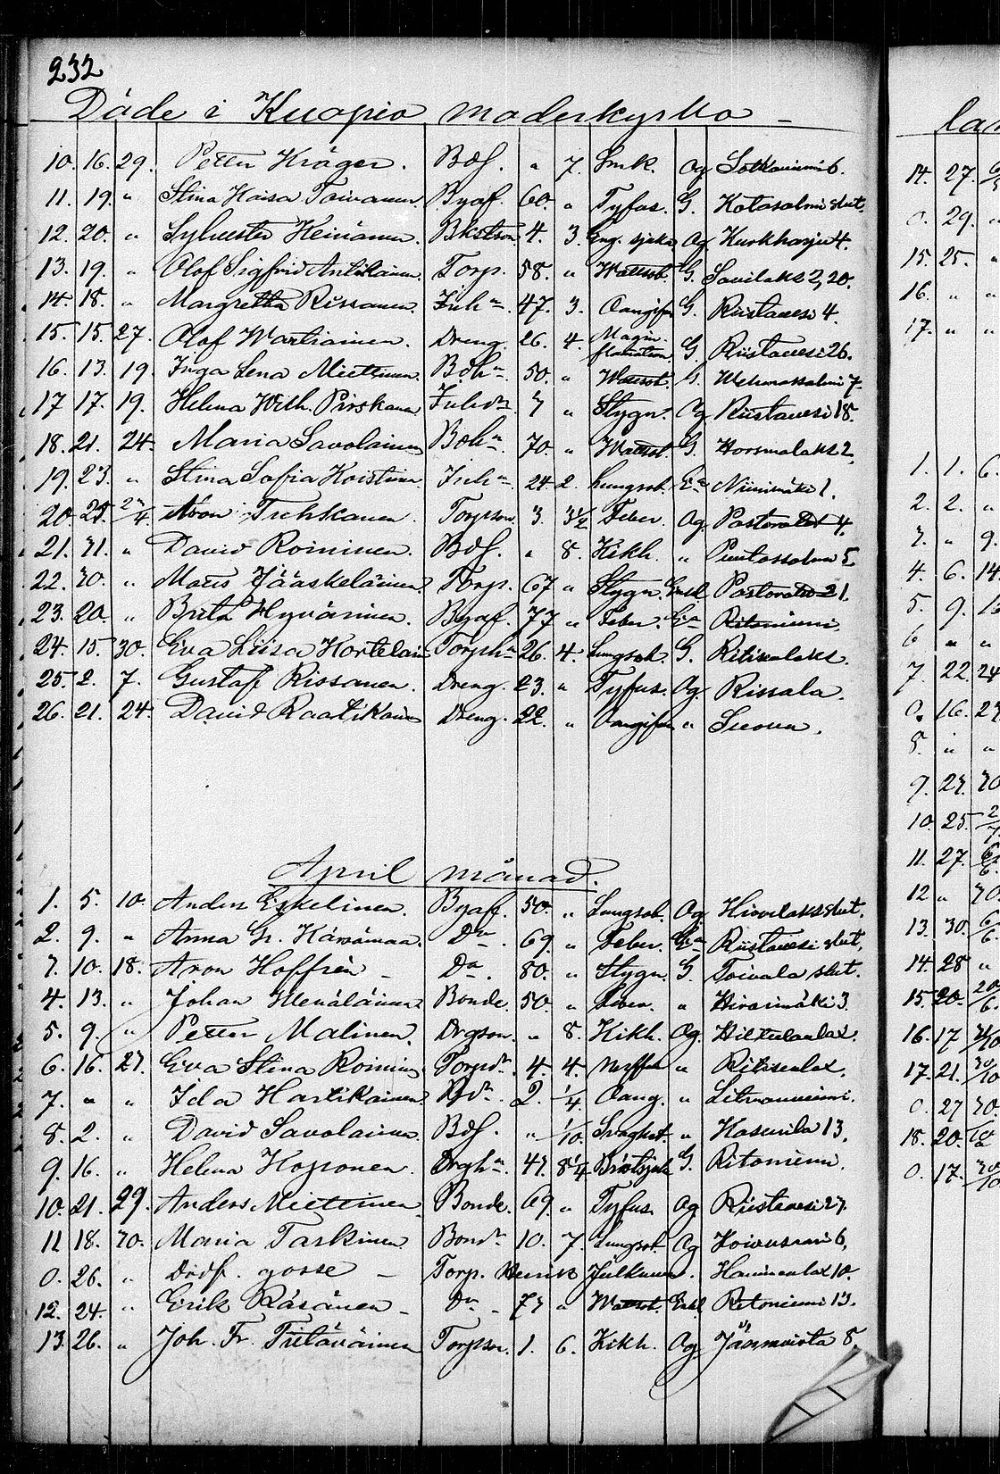 232
Döde i Kuopio moderkyrka
10. 16. 29. Petter Kröger. Bdf. " 7. Smk. Og Lotkoniemi 6.
11. 19. " Stina Kaisa Toivanen. Byaf. 60. " Tyfus. G. Kotasalmi slut.
12. 20. " Sylvester Heinänen. Bkstson. 4. 3. Eng. sjuka Og Kurkharju 4.
13. 19. " Olof Sigfrid Antikainen. Torp. 58. " Wattsot. G. Savilaks 2, 20.
14. 18. " Margretha Rissanen. Inh. 47. 3. Oangifn G. Riistavesi 4.
15. 15. 27. Olof Wartiainen. Dreng. 26. 4. Magin- G. Riistavesi 26.
16. 13. 19. Inga Lena Miettinen. Bdhn. 50. " Wattsot. G. Wehmassalmi 7.
17 17. 19. Helena Wilh. Pirskanen Inhdr 7 " Stygn. Og Riistavesi 18.
18. 21. 24. Maria Savolainen Bdhn 70. " Wattsot. G. Horsmalaks 2.
19. 23. " Stina Sofia Koistinen. Inhn. 24. 2. Lungsot. En Niinimäki 1.
20. 25. 2/4 Aron Tuhkanen. Torpson. 3. 3 1/2 Feber. Og Pastoratet 4.
21. 31. " David Roininen. Bdf. " 8. Kikh. "
22. 30. " Mats Jääskeläinen. Torp. 67 " Stygn. Enkl Pastoratet 21.
23. 20. " Brita Hyvärinen. Byaf. 77 " Feber. En Ritoniemi
24. 15. 30. Eva Liisa Kortelain Torphn 26. 4. Lungsot. G. Ritisenlaks.
25. 2. 7. Gustaf Rissanen. Dreng. 23. " Tyfus. Og. Rissala.
26. 21. 24. David Raatikain Dreng. 22. " Oangifn " Suovu.
April månad.
1. 5. 10. Anders Eskelinen. Byaf. 50. " Lungsot. Og Hirvilaks slut.
2. 9. " Anna Gr. " 69. " Feber. En Riistavesi slut.
3. 10. 18. Aron Hoffrén Do. 80. " Stygn. G. Toivala slut.
4. 13. " Johan Menäläinen Bonde. 50. " " Hirvimäki 3.
5. 9. " Petter Malinen. Drgson. " 8. Kikh. Og. Hiltulanlax.
6. 16. 27. Eva Stina Roinin Torpdr. 4. 4. Messlen " Ritisenlax.
7. " " Ida Hartikainen Bdr. 2. 1/4 Oang. " Litmaniemi.
8. 2. " David Savolainen. Bdf. " 1/10. Svaghet. " Kasurila 13.
9. 16. " Helena Kopponen. Drghn. 43. 8 1/4 Bröstsjuk G. Ritoniemi.
10. 21. 29. Anders Miettinen Bonde. 69. " Tyfus. Og Riistavesi 27.
11 18. 30. Maria Tarkinen. Bondr. 10. 7. Lungsot. Og Koivusaari 6,
0. 26. " Dödf. gosse – Torp. Henrik Julkunen. Haminalax 10.
12. 24. " Erik Räsänen – Do. 73 " Wattsot. Enkl Ritoniemi 13.
13. 26. " Joh. Fr. Torpson. 1. 6. Kikh. Og. 8.
14. 27.
0. 29. "
15. 25. "
16. " "
17. " "
1. 1. 6.
2. 2. "
3. " 9.
4. 6. 14.
5. 9.
6 " "
7. 22. 24
0. 16. 23.
8. " "
9. 23. 30
10. 25.
11. 27.
12 " 30.
13. 30.
14. 28 "
15. 20.
16. 17
17. 21.
0. 27 30.
18. 20.
0. 17.